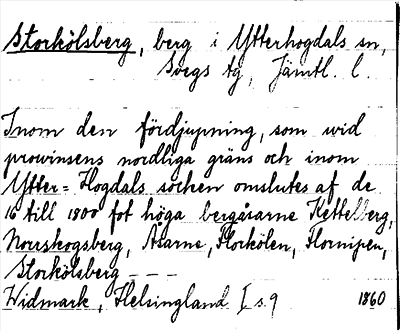 Storkölsberg, berg i Ytterhogdals sn,
Svegs tg, Jämtl. l.
Inom den fördjupning, som wid
prowinsens nordliga gräns och inom
Ytter=Hogdals socken omslutes af de
16 till 1800 fot höga bergåsarne Kettelberg,
Norrskogsberg, Åsarne, Storkölen, Hornipen,
Storkölsberg - - -
Widmark, Helsingland I s. 9 1860